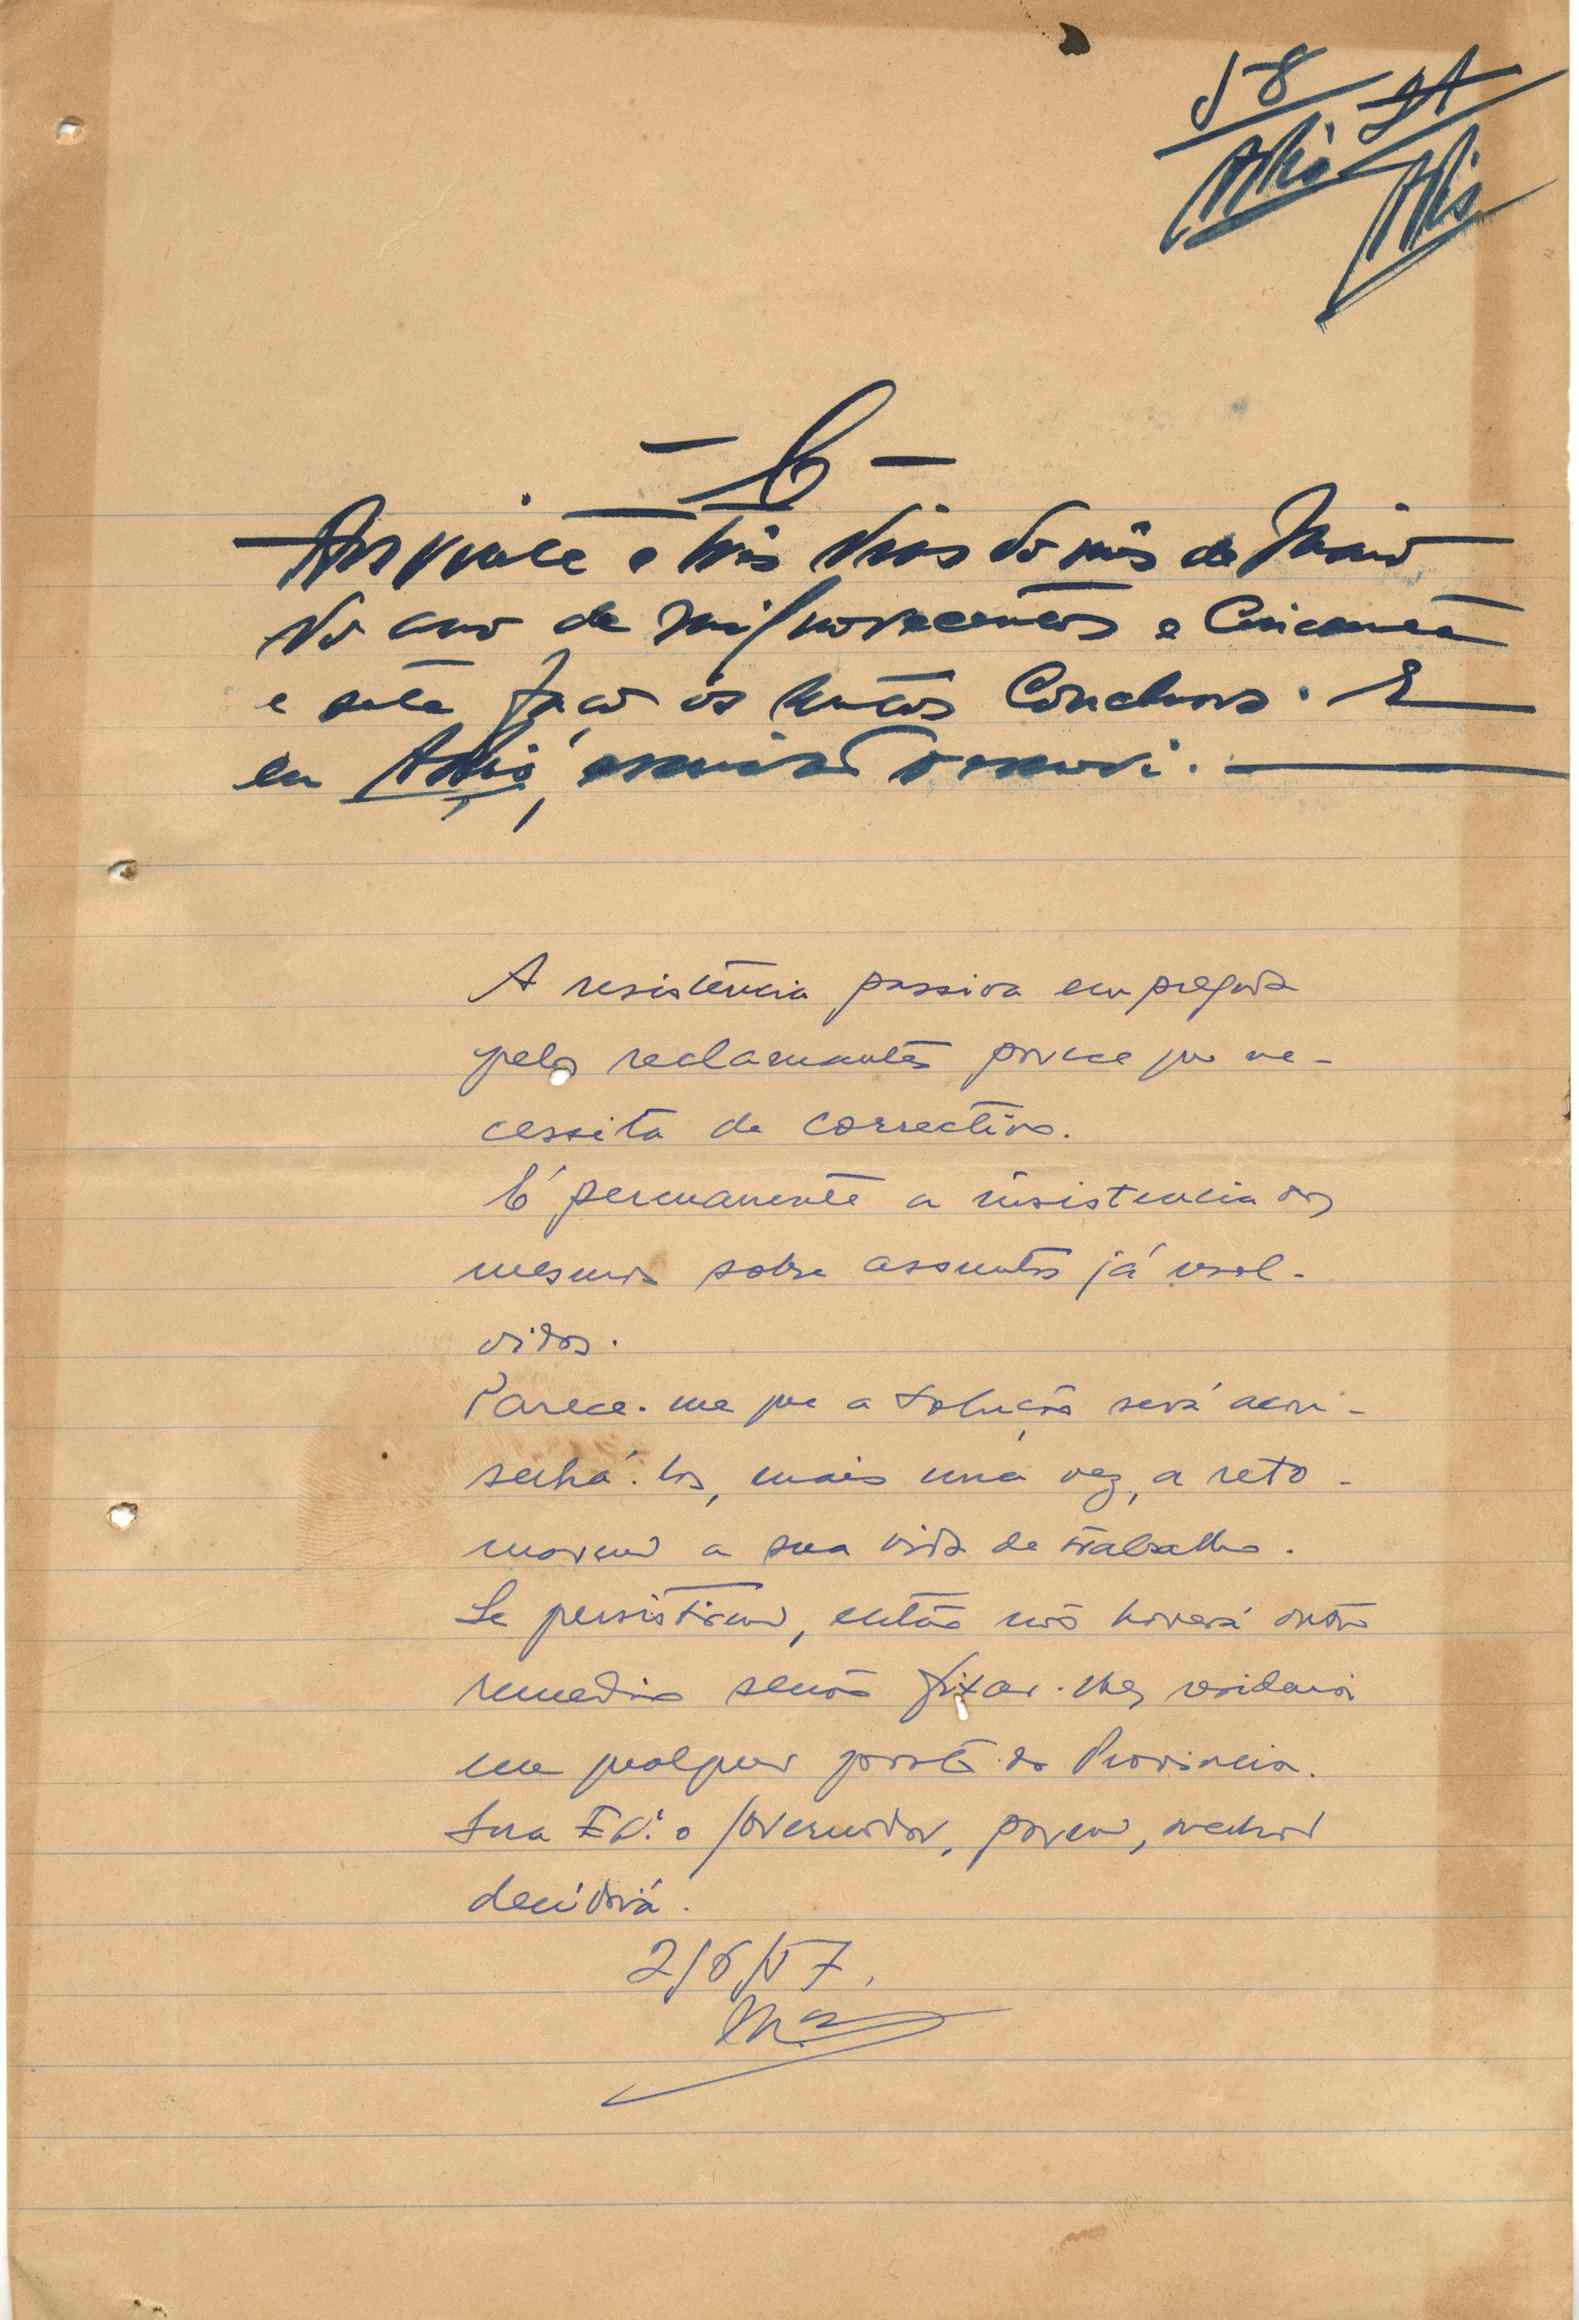 58
— C —
Aos vinte e três dias do mês de Maio
do ano de mil novecentos e Cincoenta
e sete faço os autos Conclusos. E
eu, escrivão o escrevi.
A resistência passiva empregada
pelos reclamantes parece que ne-
cessita de correctivo.
É permanente a insistencia dos
mesmos sobre assuntos já resol-
vidos.
Parece-me que a solução será acon-
selhá-los, mais uma vez, a reto-
marem a sua vida de trabalho.
Se persistirem, então não haverá outro
remedio senão fixar-lhes residencia
em qualquer ponto da Provincia.
Sua Exª. o Governador, porem, melhor
decidirá.
2/6/57.